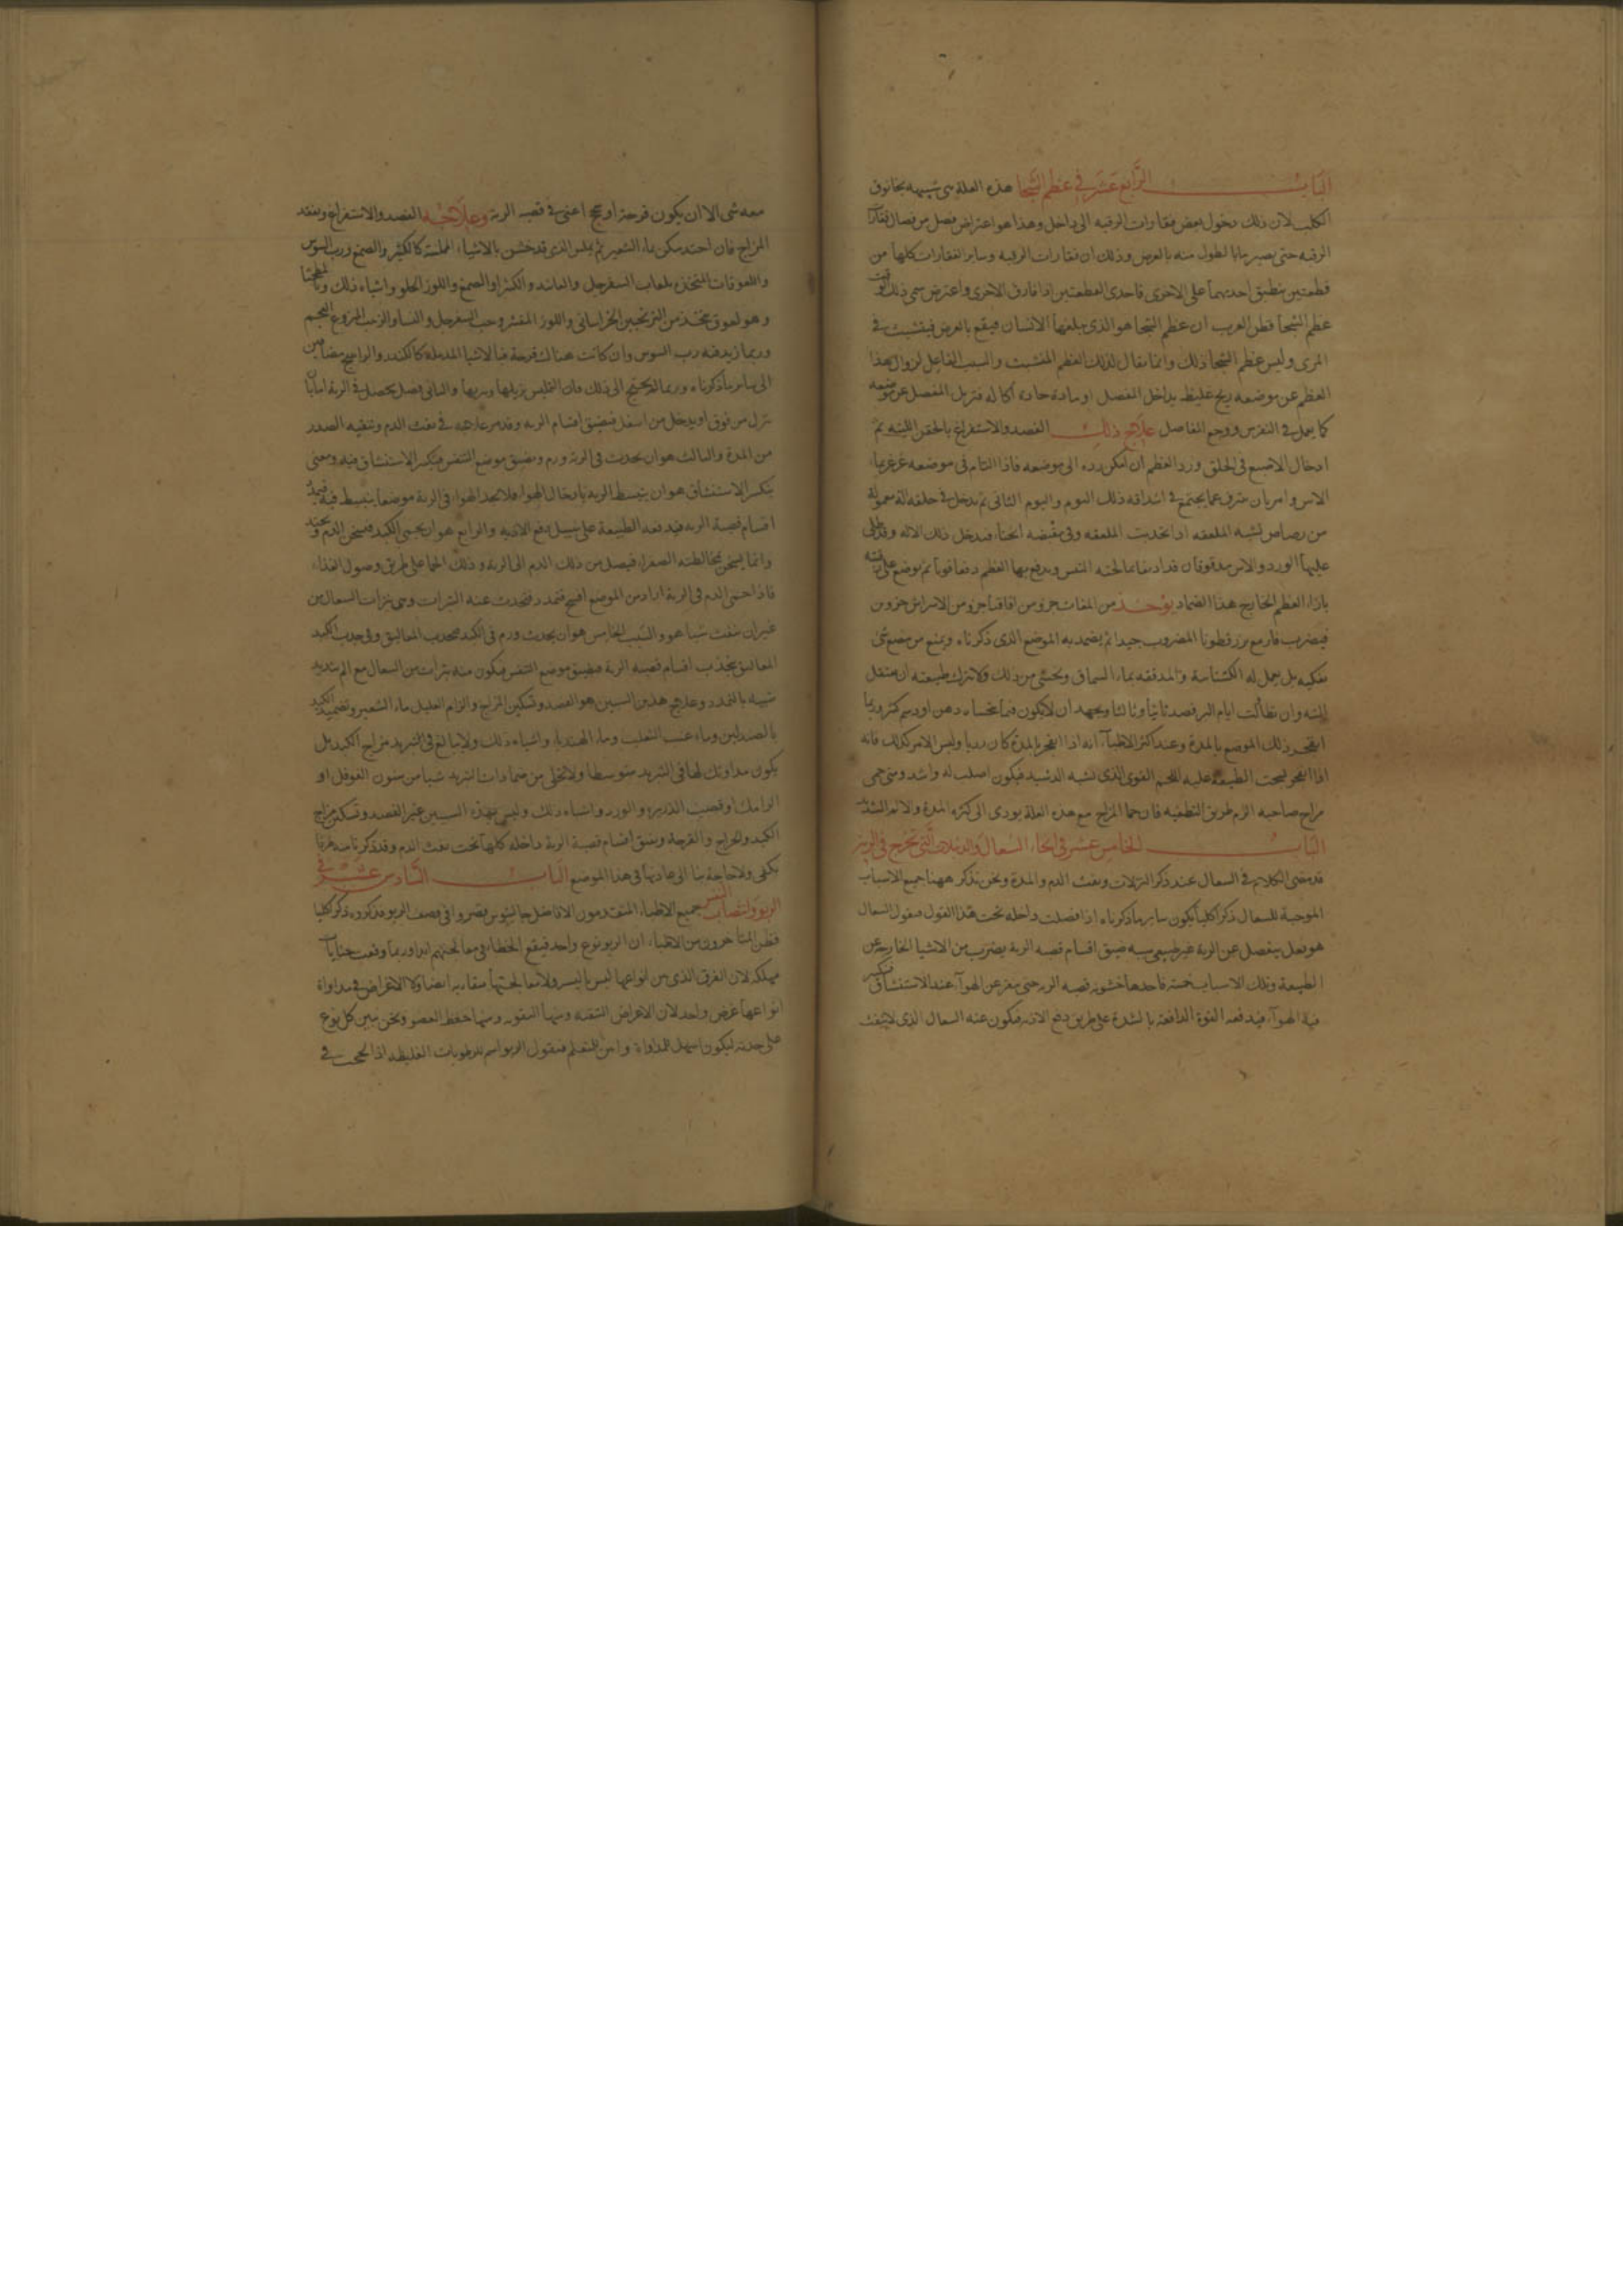 الباب الرابع عشر في عظم الشجا هذه العلة هي شبيهه بخانوق
الكلب لان ذلك دخول بعض فقارات الرقبه الى داخل وهذا هو اعتراض فصل من فصال فقارات
الرقبه حتى يصير مايا لطول منه بالعرض وذلك ان فقارات الرقبه وساير الفقارات كلها من
قطعتين ينطبق احديهما على الاخرى فاحدى القطعتين اذا فارق الاخرى واعترض سمى ذلك الوقت
عظم الشجا فظن العرب ان عظم الشجا هو الذى يبلعها الانسان فيقع بالعرض فينشب في
المرى وليس عظم الشجا ذلك وانما يقال لذلك العظم المنشب والسبب الفاعل لزوال هذا
العظم عن موضعه ريح غليظه يداخل المفصل او مادة حاده اكاله فتزيل المفصل عن موضعه
كما يعمل في النقرس ووجع المفاصل علاج ذلك الفصد والاستفراغ بالحقن اللينه ثم
ادخال الاصبع في الحلق ورد العظم ان امكن رده الى موضعه فاذا التام في موضعه غرغر بماء
الاس وامر بان يبزق عما يجتمع في اشداقه ذلك اليوم واليوم الثانى ثم يدخل في حلقه الة معمولة
من رصاص تشبه الملعقه اذا انحدبت الملعقه وفي مقبضه انحناء فيدخل ذلك الاله وقد طلى
عليها الورد والاس مدقوقان قد اديفا بما لحنه النفس ويدفع بها العظم دفعا قويا ثم يوضع على رقبته
بازاء العظم الخارج هذا الضماد يوخذ من المغاث جزو من اقاقيا جزو من الاسراش جزو من
فيضرب فارمع بزرقطونا المضروب جيدا ثم يضمد به الموضع الذى ذكرناه ويمنع من مضغ شى
بفكيه بل يعمل له الكشناسة والمدققه بماء السماق ويحسى من ذلك ولا تترك طبيعته ان يعتقل
البته وان تطاولت ايام البر فصد ثانيا وثالثا ويجهد ان لا يكون فيما يحساه دهن او دسم كثر وربما
انفجر ذلك الموضع بالمدة وعند اكثر الاطباء انه اذا انفجر بالمدة كان رديا وليس الامر كذلك فانه
اذا انفجر لبحت الطبيعة عليه اللحم القوى الذى يشبه الدشبد فيكون اصلب له واشد ومتى حمى
مزاج صاحبه الزم طريق التطفيه فان حما المزاج مع هذه العلة يودى الى كثره المدة والالم الشديد
الباب الخامس عشر في انحاء السعال والدبيلات التي تخرج في الرية
قد مضى الكلام في السعال عند ذكر النزلات ونفث الدم والمدة ونحن نذكر ههنا جميع الاسباب
الموجبة للسعال ذكرا كليا يكون ساير ما ذكرناه اذا فصلت داخله تحت هذا القول فنقول السعال
هو فعل ينفصل عن الرية غير طبيعى سببه ضيق اقسام قصبه الرية بضرب من الاشيا الخارجه عن
الطبيعة وتلك الاسباب خمسة فاحدها خشونه قصبه الريه حتى يفزعن الهوآء عند الاستنشاق فينكسر
فيه الهوآء فيدفعه القوة الدافعة بالشدة على طريق دفع الاذيه فيكون عنه السعال الذى لا ينفث
معه شى الا ان يكون قرحة او سحج اعنى في قصبه الرية وعلاجه الفصد والاستفراغ وتفقد
المزاج فان احتد سكن بماء الشعير ثم يملس الذى قد خشن بالاشياء المملسة كالكثيرا والصمغ ورب السوس
واللعوقات المتخذه بلعاب السفرجل والفانيد والكثيرا والصمغ واللوز الحلو واشباه ذلك ومطبخنا
وهو لعوق يتخذ من الترنجبين الخراسانى واللوز المقشر وحب السفرجل والنشا والزبيب المنزوع العجم
وربما زيد فيه رب السوس وان كانت هناك قرحة فبالاشيا المدمله كالكندر والراتينج مضافين
الى ساير ما ذكرناه وربما لم يحتج الى ذلك فان التمليس يزيلها ويبريها والثانى فصل يحصل في الرية اما بان
ينزل من فوق او يدخل من اسفل فيضيق اقسام الريه وقد مر علاجه في نفث الدم وتنقيه الصدر
من المدة والثالث هو ان يحدث في الرية ورم ويضيق موضع التنفس فيكسر الاستنشاق فيه ومعنى
ينكسر الاستنشاق هو ان ينبسط الريه بادخال الهواء فلا يجد الهواء في الرية موضعا ينبسط فيه فيمدد
اقسام قصبة الريه فيدفعه الطبيعة على سبيل دفع الاذيه والرابع هو ان يحمى الكبد فيسخن الدم ويحتد
وانما يسخن بمخالطته الصفراء فيصل من ذلك الدم الى الرية وذلك الحما على طريق وصول الغذاء
فاذا حصل الدم في الرية اراد من الموضع افسح فتمدد فتحدث عنه النبرات وهى نبرات السعال من
غير ان ينفث شيا هو والسبب الخامس هو ان يحدث ورم في الكبد فيجذب المعاليق وفي جذب الكبد
المعاليق يجذب اقسام قصبه الرية فيضيق موضع التنفس فيكون منه نبرات من السعال مع الم شديد
شبيه بالتمدد وعلاج هذين السببين هو الفصد وتسكين المزاج والزام العليل ماء الشعير وتضميد الكبد
بالصندلين وماء عنب الثعلب وماء الهندبا واشباه ذلك ولا يبالغ في التبريد مزاج الكبد بل
يكون مداوتك لها في التبريد متوسطا ولا تخلى من ضمادات التبريد شيا من سنون الفوفل او
الرامك او قصب الذريره والورد واشباه ذلك وليس بهذه السببين غير الفصد وتسكين مزاج
الكبد والخراج والقرحة وضيق اقسام قصبة الرية داخلة كلها تحت نفث الدم وقد ذكرنا منه طرفا
يكفى ولا حاجة بنا الى اعادتها في هذا الموضع الباب السادس عشر في
الربو وانتصاب النفس جميع الاطباء المتقدمون الا فاضل جالينوس قصروا في وصف الربو فذكروه ذكرا كليا
فظن المتاخرون من الاطباء ان الربو نوع واحد فيقع الخطاء في معالجتهم ابدا وربما وقعت جنايات
مهلكه لان الفرق الذى بين انواعها ليس باليسير ولا معالجتها متقاربه ايضا ولا الاغراض في مداواة
انواعها غرض واحد لان الاغراض التنقيه ومنها التقويه ومنها حفظ العضو ونحن نبين كل نوع
على حدته ليكون اسهل للمداواة وابين للمتعلم فنقول الربو اسم للرطوبات الغليظه اذا لحجت في